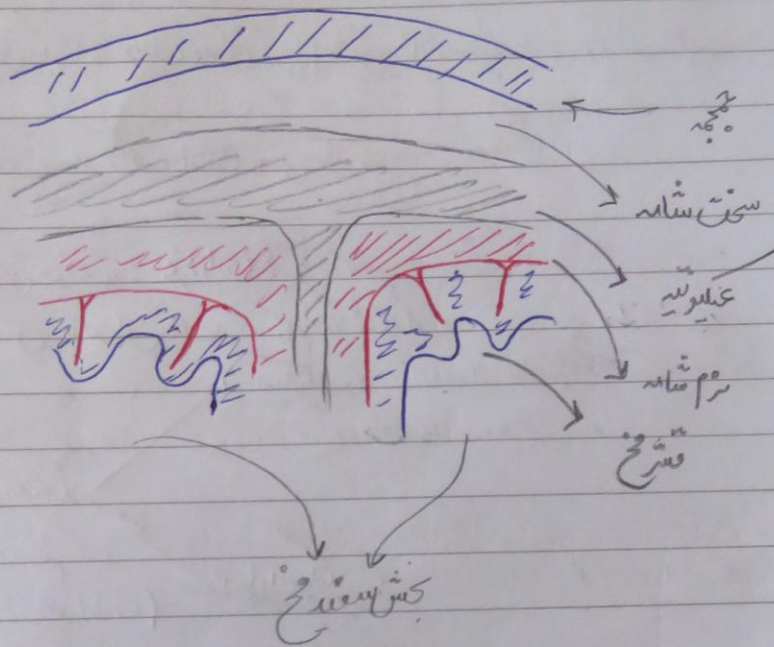 جمجمه
سخت شامه
عنکبوتیه
نرم شامه
قشر مخ
بخش سفید مخ